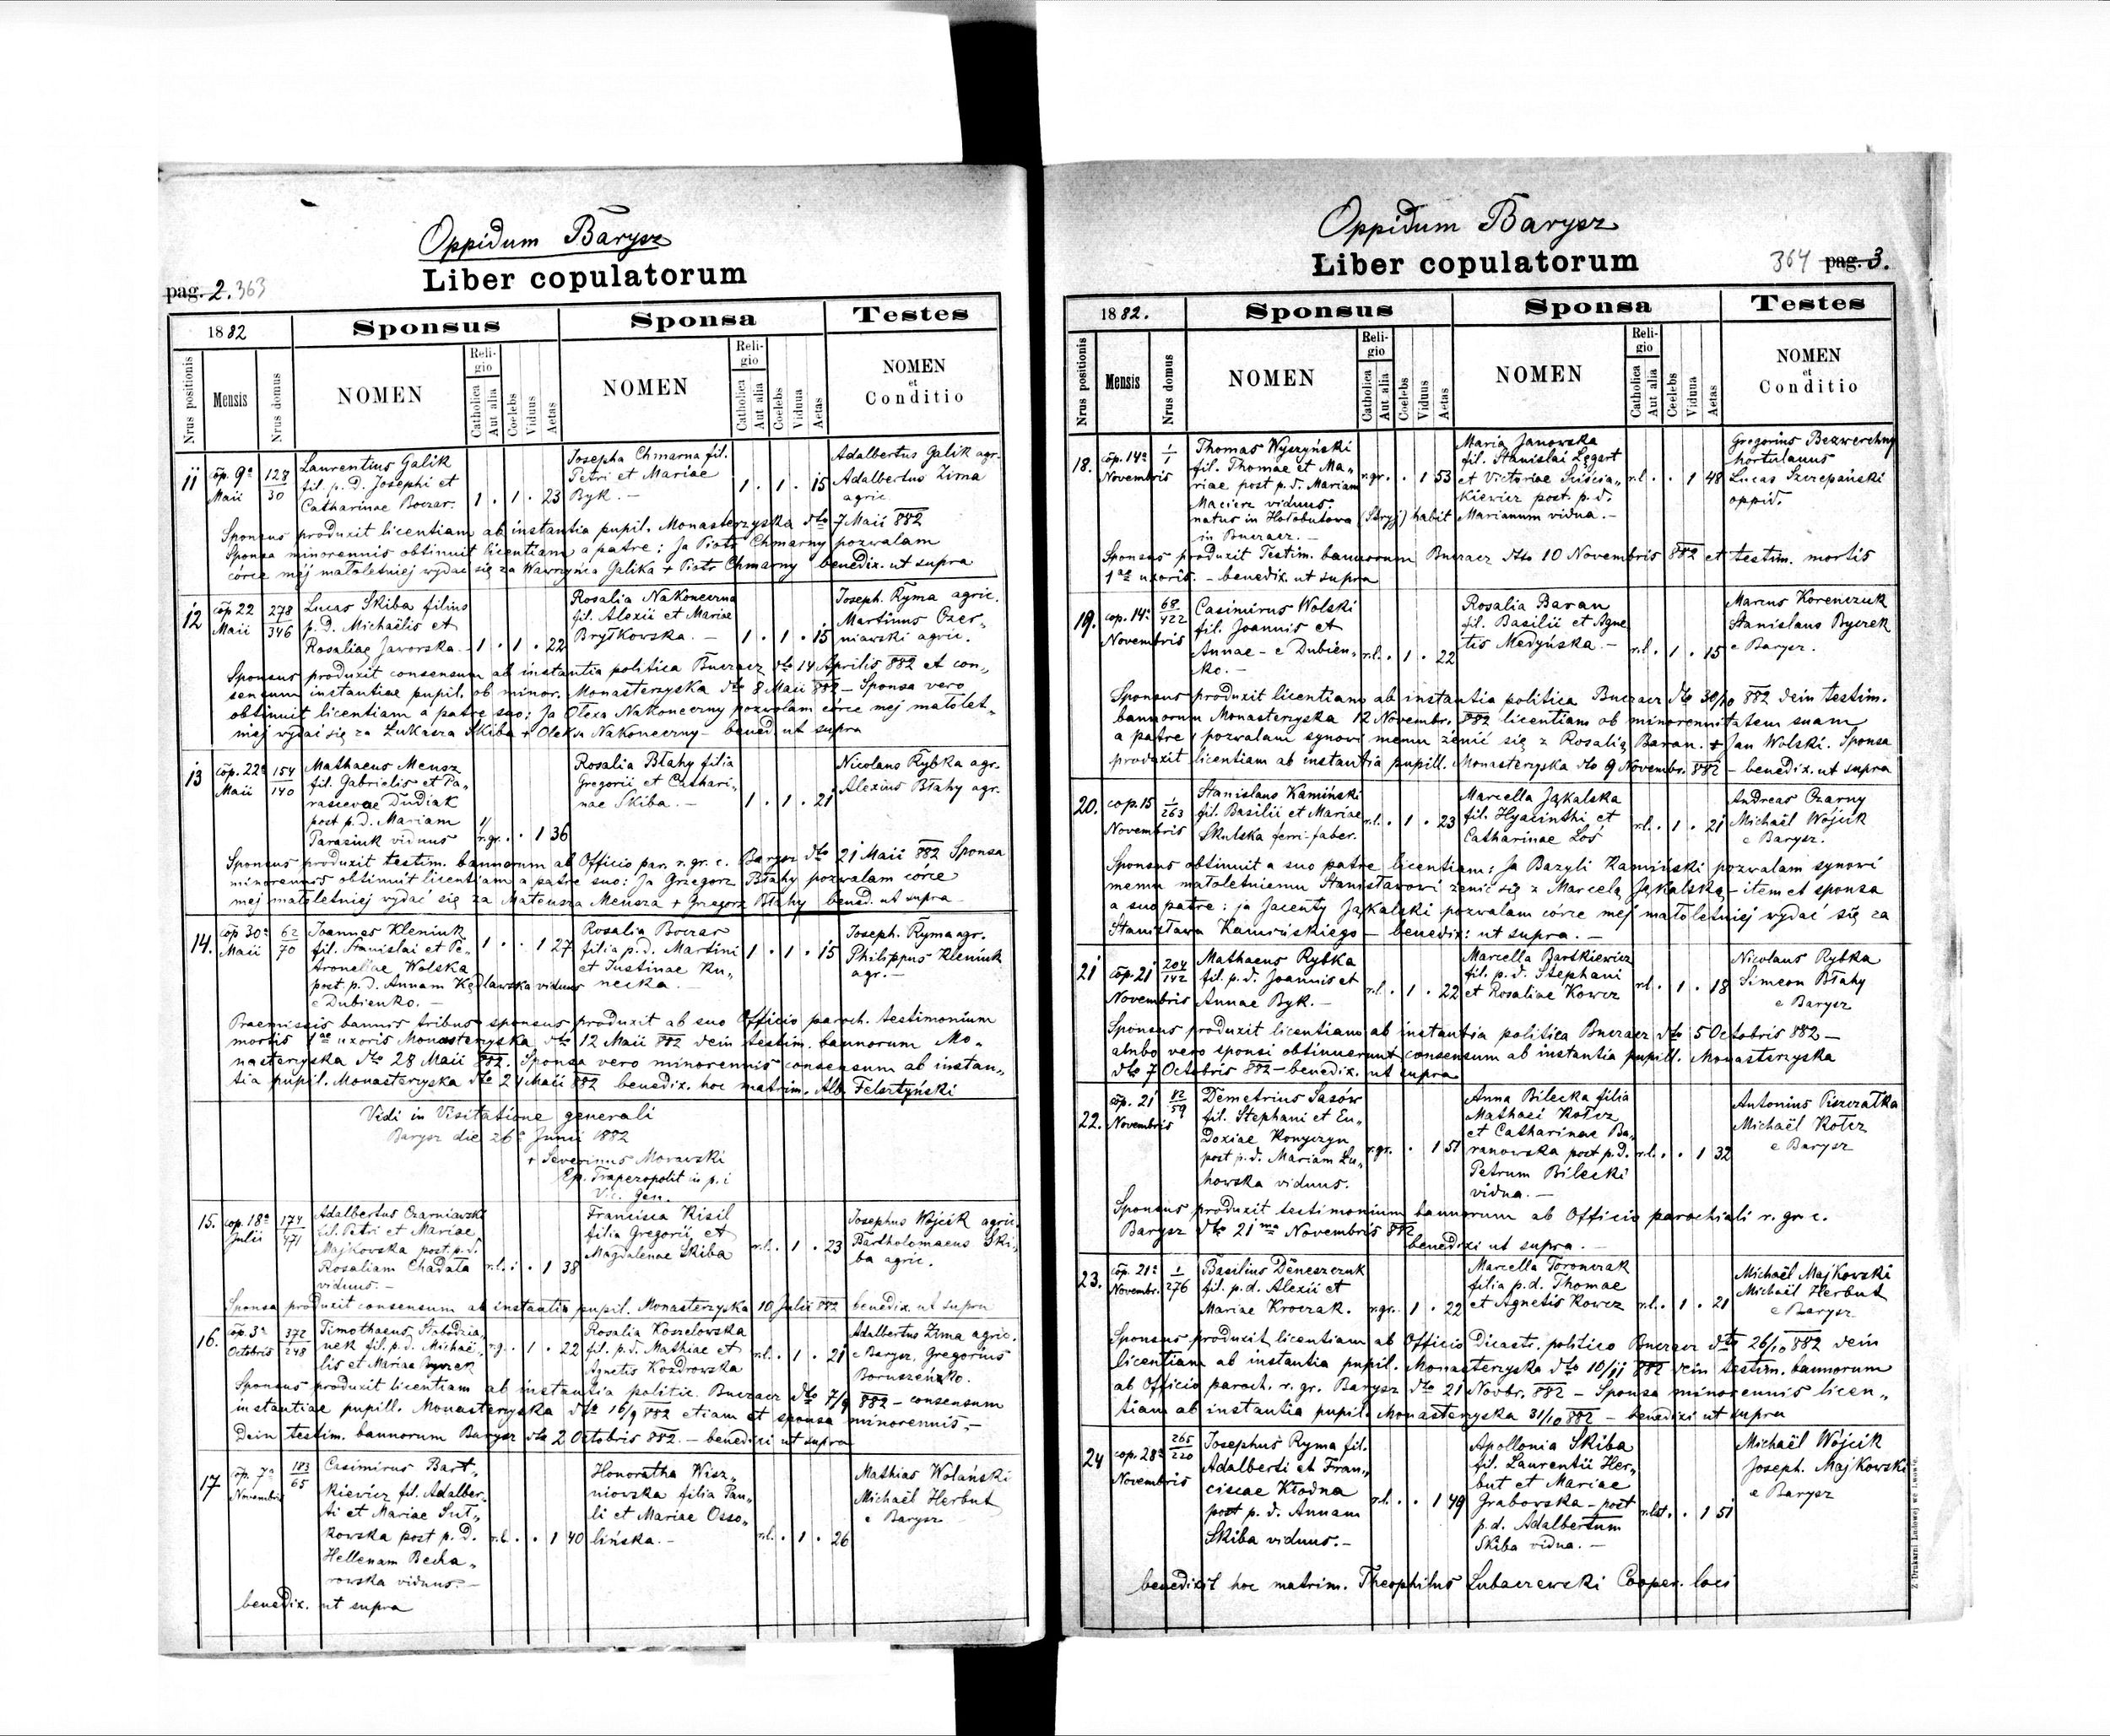 Oppidum Barysz
Liber copulatorum
pag. 2. 363
1882
Sponsus
Sponsa
Testes
Nrus positionis
Mensis
Nrus domus
NOMEN
Religio
Catholica
Aut alia
Coelebs
Viduus
Aetas
NOMEN
Religio
Catholica
Aut alia
Coelebs
Vidua
Aetas
NOMEN
et
Conditio
11 cop. 9a Maii 128/30
Laurentius Galik
fil. p. d. Josephi et
Catharinae Boczar. 1 . 1 . 23
Josepha Chmarna fil.
Petri et Mariae
Byk. — 1 . 1 . 15
Adalbertus Galik agr.
Adalbertus Zima
agric.
Sponsus produxit licentiam ab instantia pupil. Monasterzyska dto 7 Maii 882
Sponsa minorennis obtinuit licentiam a patre: Ja Piotr Chmarny pozwalam
córce mej małoletniej wydać się za Wawrzyńca Galika + Piotr Chmarny benedix. ut supra
12 cop 22 Maii 278/346
Lucas Skiba filius
p. d. Michaëlis et
Rosaliae Jaworska. 1 . 1 . 22
Rosalia Nakoneczna
fil. Alexii et Mariae
Brytkowska. — 1 . 1 . 15
Joseph. Ryma agric.
Martinus Czer„
niawski agric.
Sponsus produxit consensum ab instantia politica Buczacz dto 14 Aprilis 882 et con„
sensum instantiae pupil. ob minor. Monasterzyska dto 8 Maii 882 — Sponsa vero
obtinuit licentiam a patre suo: Ja Olexa Nakoneczny pozwalam córce mej małolet„
niej wydać się za Łukasza Skiba + Oleksa Nakoneczny — bened. ut supra
13 cop. 22a Maii 154/140
Mathaeus Mensz
fil. Gabrielis et Pa„
rascevae Dudiak
post p. d. Mariam
Parasiuk viduus r.gr. . . 1 36
Rosalia Błahy filia
Gregorii et Cathari„
nae Skiba. — 1 . 1 . 21
Nicolaus Rybka agr.
Alexius Błahy agr.
Sponsus produxit testim. bannorum ab Officio par. r. gr. c. Barysz dto 21 Maii 882 Sponsa
minorennis obtinuit licentiam a patre suo: Ja Grzegorz Błahy pozwalam córce
mej małoletniej wydać się za Mateusza Mensza + Grzegorz Błahy bened. ut supra
14. cop 30a Maii 62/70
Joannes Kleniuk
fil. Stanislai et Pe„
tronellae Wolska
post p. d. Annam Kędlawska viduus
e Dubienko. — 1 . . 1 27
Rosalia Boczar
filia p. d. Martini
et Justinae Ku„
necka. — 1 . 1 . 15
Joseph. Ryma agr.
Philippus Kleniuk
agr. —
Praemissis bannis tribus sponsus produxit ab suo Officio paroch. testimonium
mortis 1ae uxoris Monasterzyska dto 12 Maii 882 dein testim. bannorum Mo„
nasterzyska dto 28 Maii 882. Sponsa vero minorennis consensum ab instan„
tia pupil. Monasterzyska dto 24 Maii 882 benedix. hoc matrim. Alb. Felsztyński
Vidi in Visitatione generali
Barysz die 26a Junii 1882
+ Severinus Morawski
Ep. Trapezopolit in p. i
Vic. Gen.
15. cop. 18a Julii 174/471
Adalbertus Czarniawski
fil. Petri et Mariae
Majkowska post p. d.
Rosaliam Chadata
viduus. — r.l. . . 1 38
Francisca Kisil
filia Gregorii et
Magdalenae Skiba r.l. . 1 . 23
Josephus Wójcik agric.
Bartholomaeus Ski„
ba agric.
Sponsa produxit consensum ab instantia pupil. Monasterzyska 10 Julii 882 benedix. ut supra
16. cop. 3a Octobris 372/248
Timothaeus Słobodzia„
nek fil. p. d. Michaë„
lis et Mariae Byczek r.g. . 1 . 22
Rosalia Koszelowska
fil. p. d. Mathiae et
Agnetis Kozdrowska r.l. . 1 . 21
Adalbertus Zima agric.
e Barysz, Gregorius
Boruszeńko.
Sponsus produxit licentiam ab instantia politic. Buczacz dto 7/9 882 — consensum
instantiae pupill. Monasterzyska dto 16/9 882 etiam et sponsa minorennis. —
Dein testim. bannorum Barysz dto 2 Octobris 882. — benedixi ut supra
17 cop. 7a Novembris 183/65
Casimirus Bart„
kiewicz fil. Adalber„
ti et Mariae Sut„
kowska post p. d.
Hellenam Becha„
rowska viduus. — r.l. . . 1 40
Honoratha Wisz„
niowska filia Pau„
li et Mariae Osso„
lińska. — r.l. . 1 . 26
Mathias Wolański
Michaël Herbut
e Barysz
benedix. ut supra
Oppidum Barysz
Liber copulatorum
364 pag. 3.
1882.
Sponsus
Sponsa
Testes
Nrus positionis
Mensis
Nrus domus
NOMEN
Religio
Catholica
Aut alia
Coelebs
Viduus
Aetas
NOMEN
Religio
Catholica
Aut alia
Coelebs
Vidua
Aetas
NOMEN
et
Conditio
18. cop. 14a Novembris 1/1
Thomas Wyszyński
fil. Thomae et Ma„
riae post p. d. Mariam
Macierz viduus.
natus in Hołobutova (Stryj) habit
in Buczacz. — r.gr. . . 1 53
Maria Janowska
fil. Stanislai Lęgart
et Victoriae Suścia„
kiewicz post. p. d.
Marianum vidua. — r.l. . . 1 48
Gregorius Bezwerchny
hortulanus
Lucas Szczepański
oppid.
Sponsus produxit Testim. bannorum Buczacz dto 10 Novembris 882 et testim. mortis
1ae uxoris. — benedix. ut supra
19. cop. 14a Novembris 68/422
Casimirus Wolski
fil. Joannis et
Annae — e Dubien„
ko. — r.l. . 1 . 22
Rosalia Baran
fil. Basilii et Agne
tis Medyńska. — r.l. . 1 . 15
Marcus Korenczuk
Stanislaus Byczek
e Barysz.
Sponsus produxit licentiam ab instantia politica Buczacz dto 30/10 882 dein testim.
bannorum Monasterzyska 12 Novembr. 882 licentiam ob minorennitatem suam
a patre, pozwalam synowi memu żenić się z Rosalią Baran. + Jan Wolski. Sponsa
produxit licentiam ab instantia pupill. Monasterzyska dto 9 Novembr. 882 — benedix. ut supra
20. cop. 15 Novembris 1/263
Stanislaus Kamiński
fil. Basilii et Mariae
Skulska ferri-faber. r.l. . 1 . 23
Marcella Jąkalska
fil. Hyacinthi et
Catharinae Łoś r.l. . 1 . 21
Andreas Czarny
Michaël Wójcik
e Barysz.
Sponsus obtinuit a suo patre licentiam: Ja Bazyli Kamiński pozwalam synowi
memu małoletniemu Stanisławowi żenić się z Marcelą Jąkalską — item et sponsa
a suo patre: ja Jacenty Jąkalski pozwalam córce mej małoletniej wydać się za
Stanisława Kamińskiego — benedix: ut supra. —
21 cop. 21 Novembris 204/142
Mathaeus Rybka
fil. p. d. Joannis et
Annae Byk. — r.l. . 1 . 22
Marcella Bartkiewicz
fil. p. d. Stephani
et Rosaliae Kowcz r.l. . 1 . 18
Nicolaus Rybka
Simeon Błahy
e Barysz
Sponsus produxit licentiam ab instantia politica Buczacz dto 5 Octobris 882 —
ambo vero sponsi obtinuerunt consensum ab instantia pupill. Monasterzyska
dto 7 Octobris 882 — benedix. ut supra
22. cop. 21 Novembris 82/59
Demetrius Sasów
fil. Stephani et Eu„
doxiae Konyczyn
post p. d. Mariam Lu„
howska viduus. r.gr. . 1 51
Anna Bilecka filia
Mathaei Kotcz
et Catharinae Ba„
ranowska post p. d.
Petrum Bilecki
vidua. — r.l. . . 1 32
Antonius Piszczałka
Michaël Kotcz
e Barysz
Sponsus produxit testimonium bannorum ab Officio parochiali r. gr. c.
Barysz dto 21ma Novembris 882
benedixi ut supra. —
23. cop. 21a Novembr. 1/276
Basilius Deneszczuk
fil. p. d. Alexii et
Mariae Kroczak. r.gr. 1 . 22
Marcella Toronczak
filia p. d. Thomae
et Agnetis Kowcz r.l. . 1 . 21
Michaël Majkowski
Michaël Herbut
e Barysz
Sponsus produxit licentiam ab Officio Dicast. politico Buczacz dto 26/10 882 dein
licentiam ab instantia pupil. Monasterzyska dto 10/11 882 dein testim. bannorum
ab Officio paroch. r. gr. Barysz dto 21 Novbr. 882 — Sponsa minorennis licen„
tiam ab instantia pupil. Monasterzyska 31/10 882 — benedixi ut supra
24 cop. 28a Novembris 265/220
Josephus Ryma fil.
Adalberti et Fran„
ciscae Kłodna
post p. d. Annam
Skiba viduus. — r.l. . . 1 49
Apollonia Skiba
fil. Laurentii Her„
but et Mariae
Grabowska — post
p. d. Adalbertum
Skiba vidua. — r.lat. . . 1 51
Michaël Wójcik
Joseph. Majkowski
e Barysz
benedixit hoc matrim. Theophilus Lubaczewski Cooper. loci
Z Drukarni Ludowej we Lwowie.